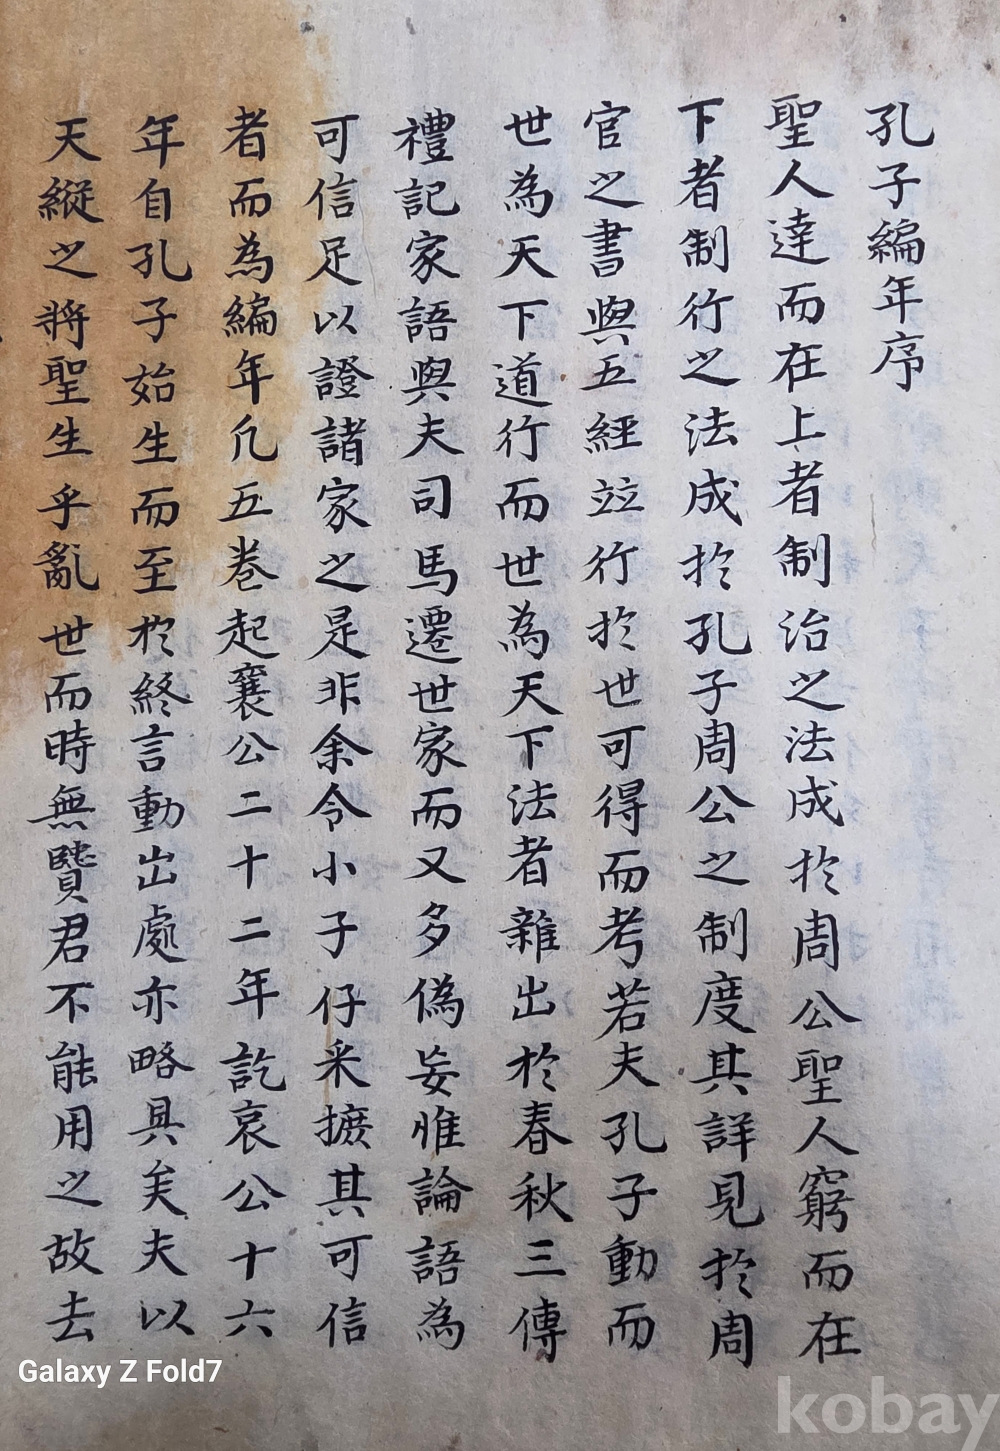 孔子編年序
聖人達而在上者制治之法成於周公聖人窮而在
下者制行之法成於孔子周公之制度其詳見於周
官之書與五經竝行於世可得而考若夫孔子動而
世為天下道行而世為天下法者雜出於春秋三傳
禮記家語與夫司馬遷世家而又多偽妄惟論語為
可信足以證諸家之是非余令小子仔采摭其可信
者而為編年凡五卷起襄公二十二年訖哀公十六
年自孔子始生而至於終言動出處亦略具矣夫以
天縱之將聖生乎亂世而時無賢君不能用之故去
Galaxy Z Fold7
kobay